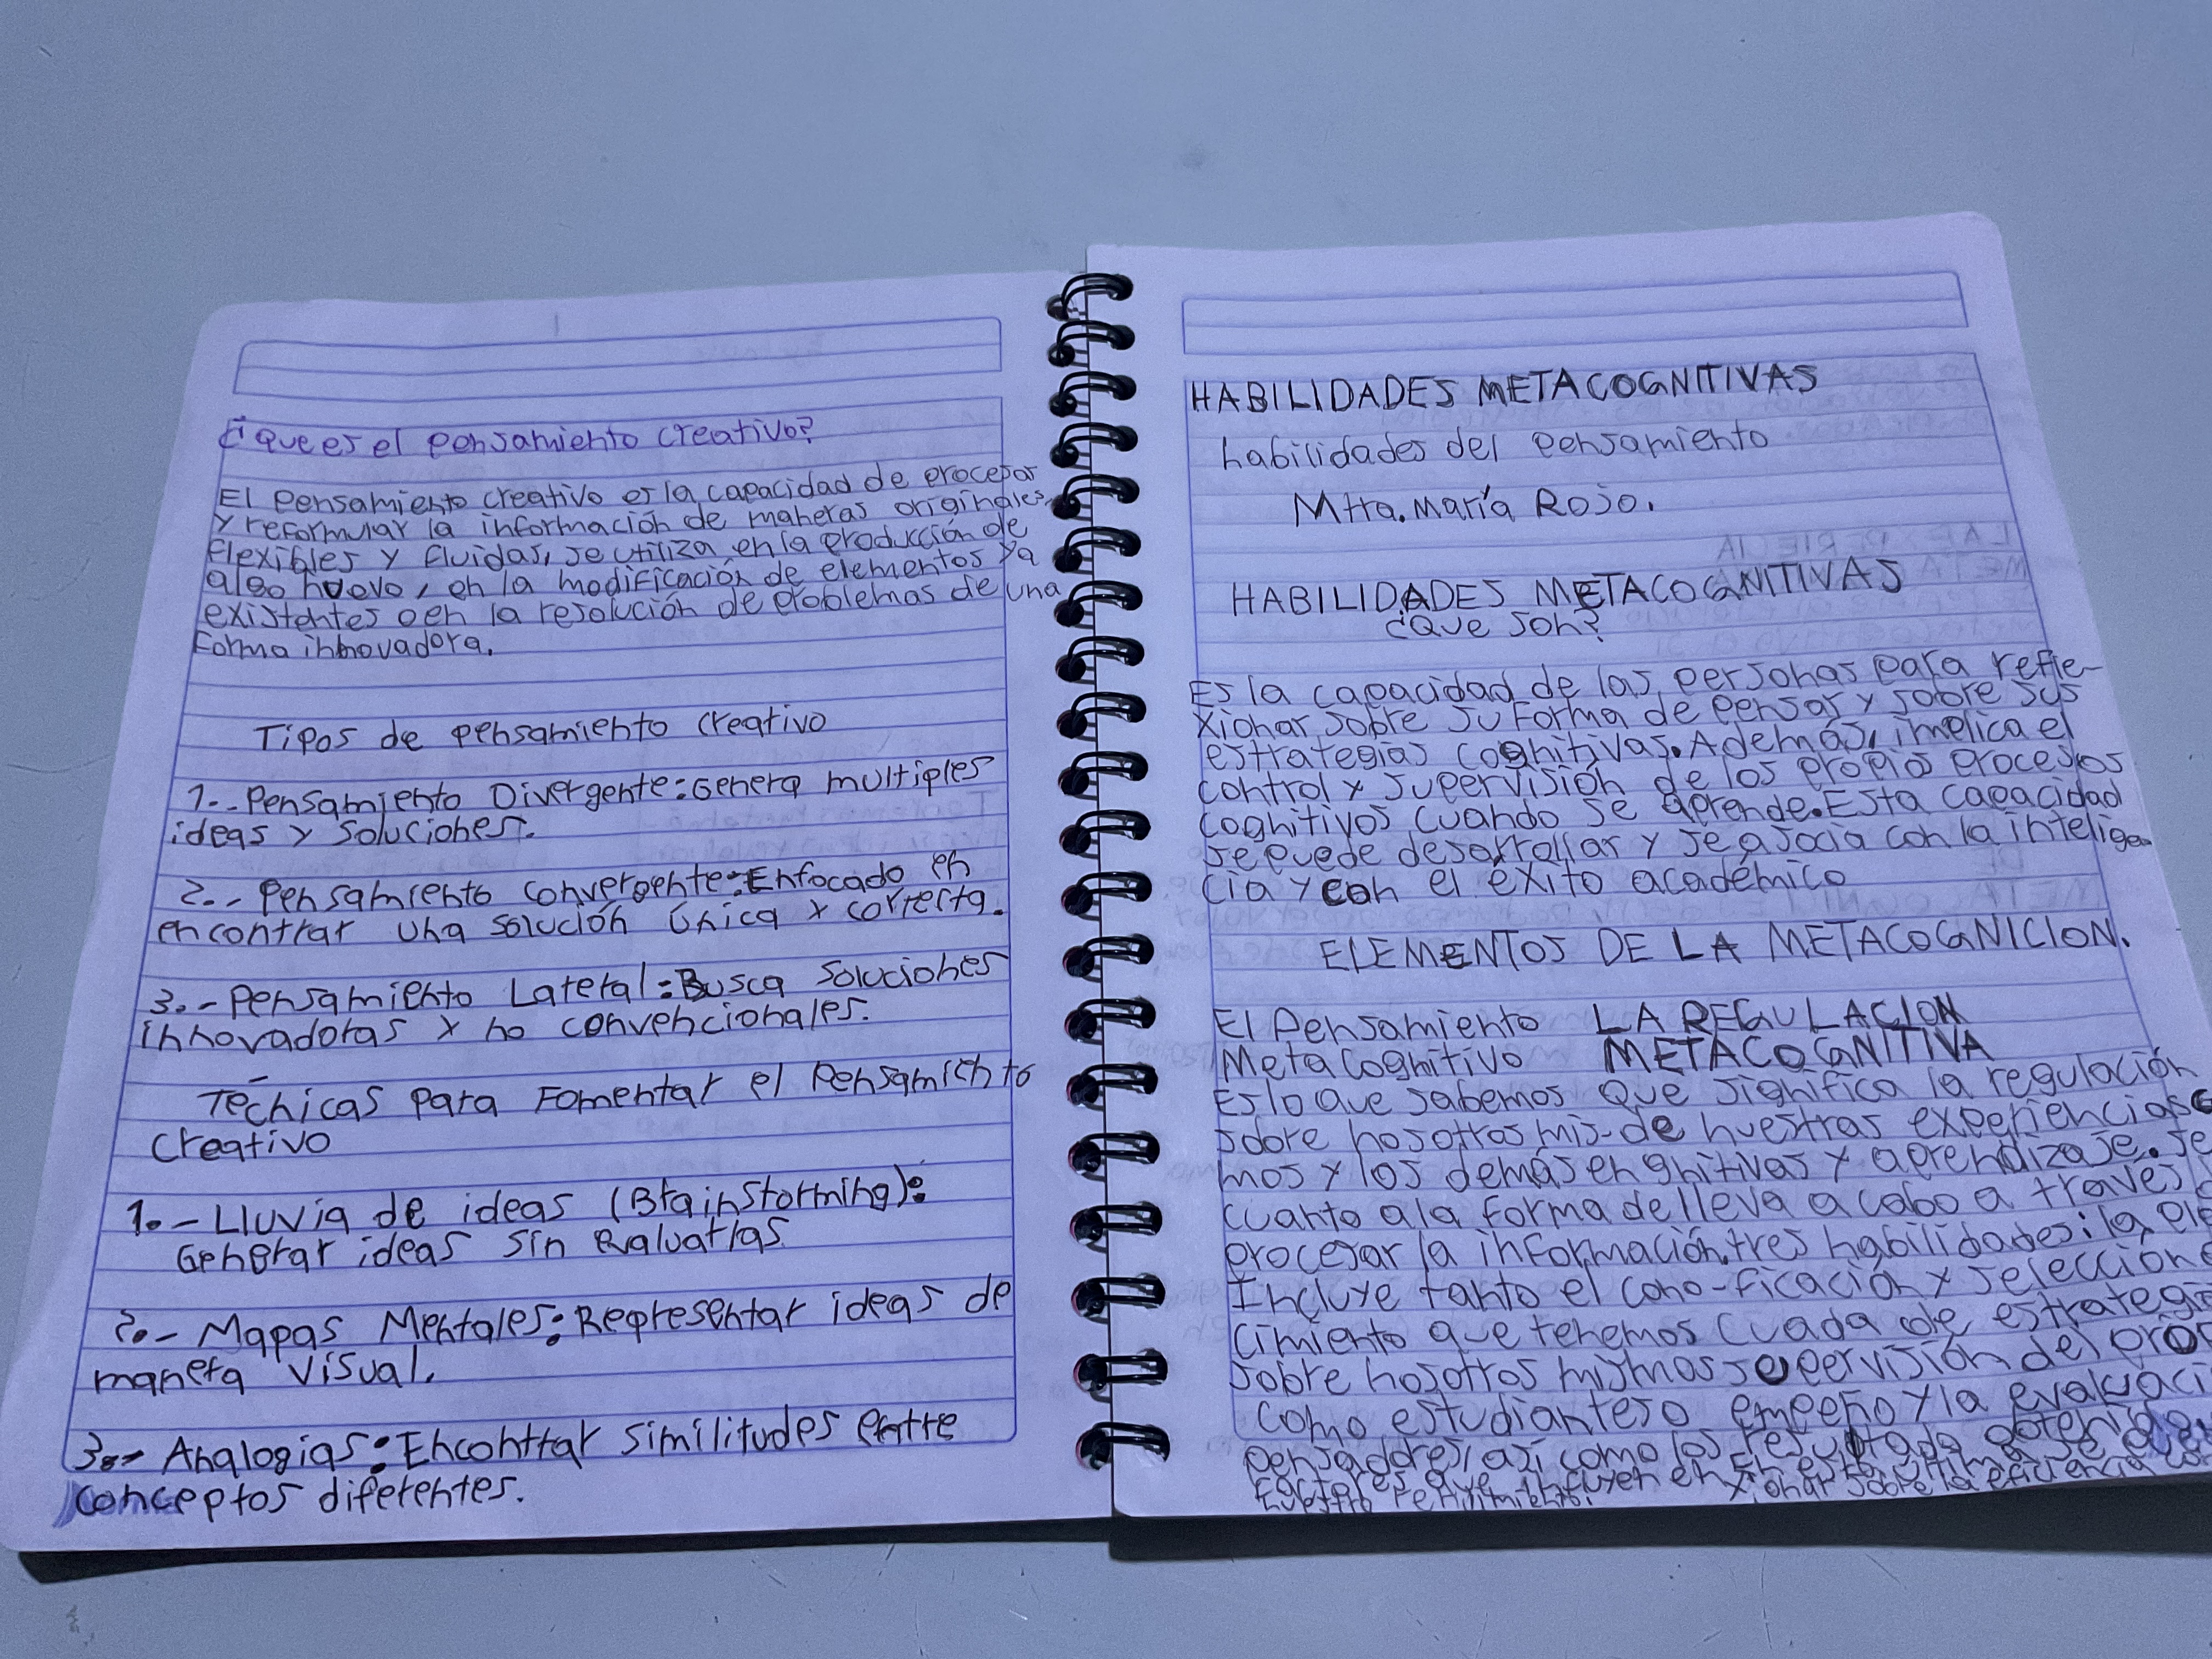 ¿que es el pensamiento creativo?
El pensamiento creativo es la capacidad de procesar
y reformular la información de maneras originales,
flexibles y fluidas, se utiliza en la producción de
algo nuevo, en la modificación de elementos ya
existentes o en la resolución de problemas de una
forma innovadora.
Tipos de pensamiento creativo
1.- Pensamiento Divergente: Genera multiples
ideas y soluciones.
2.- Pensamiento convergente: Enfocado en
encontrar una solución única y correcta.
3.- Pensamiento Lateral: Busca soluciones
innovadoras y no convencionales.
Técnicas para Fomentar el Pensamiento
Creativo
1.- Lluvia de ideas (Brainstorming):
Generar ideas sin evaluarlas
2.- Mapas Mentales: Representar ideas de
manera visual.
3.- Analogias: Encontrar similitudes entre
conceptos diferentes.
HABILIDADES METACOGNITIVAS
habilidades del pensamiento
Mtra. María Rojo.
HABILIDADES METACOGNITIVAS
¿Que son?
Es la capacidad de las personas para refle-
xionar sobre su forma de pensar y sobre sus
estrategias cognitivas. Además, implica el
control y supervisión de los propios procesos
cognitivos cuando se aprende. Esta capacidad
se puede desarrollar y se asocia con la inteligen
cia y con el éxito académico
ELEMENTOS DE LA METACOGNICION.
El Pensamiento LA REGULACION
Metacognitivo METACOGNITIVA
Es lo que sabemos que significa la regulación
sobre nosotros mis- de nuestras experiencias
mos y los demás en gnitivas y aprendizaje. Se
cuanto a la forma de lleva a cabo a traves
procesar la información. tres habilidades: la
Incluye tanto el cono- ficación y selección
cimiento que tenemos cuada de estrategi
sobre nosotros mismos supervisión del
como estudiantes o empeño y la evaluaci
pensadores, así como los resultado obtenido.
factores que influyen en En esta última se
nuestro rendimiento. xionar sobre la eficiencia